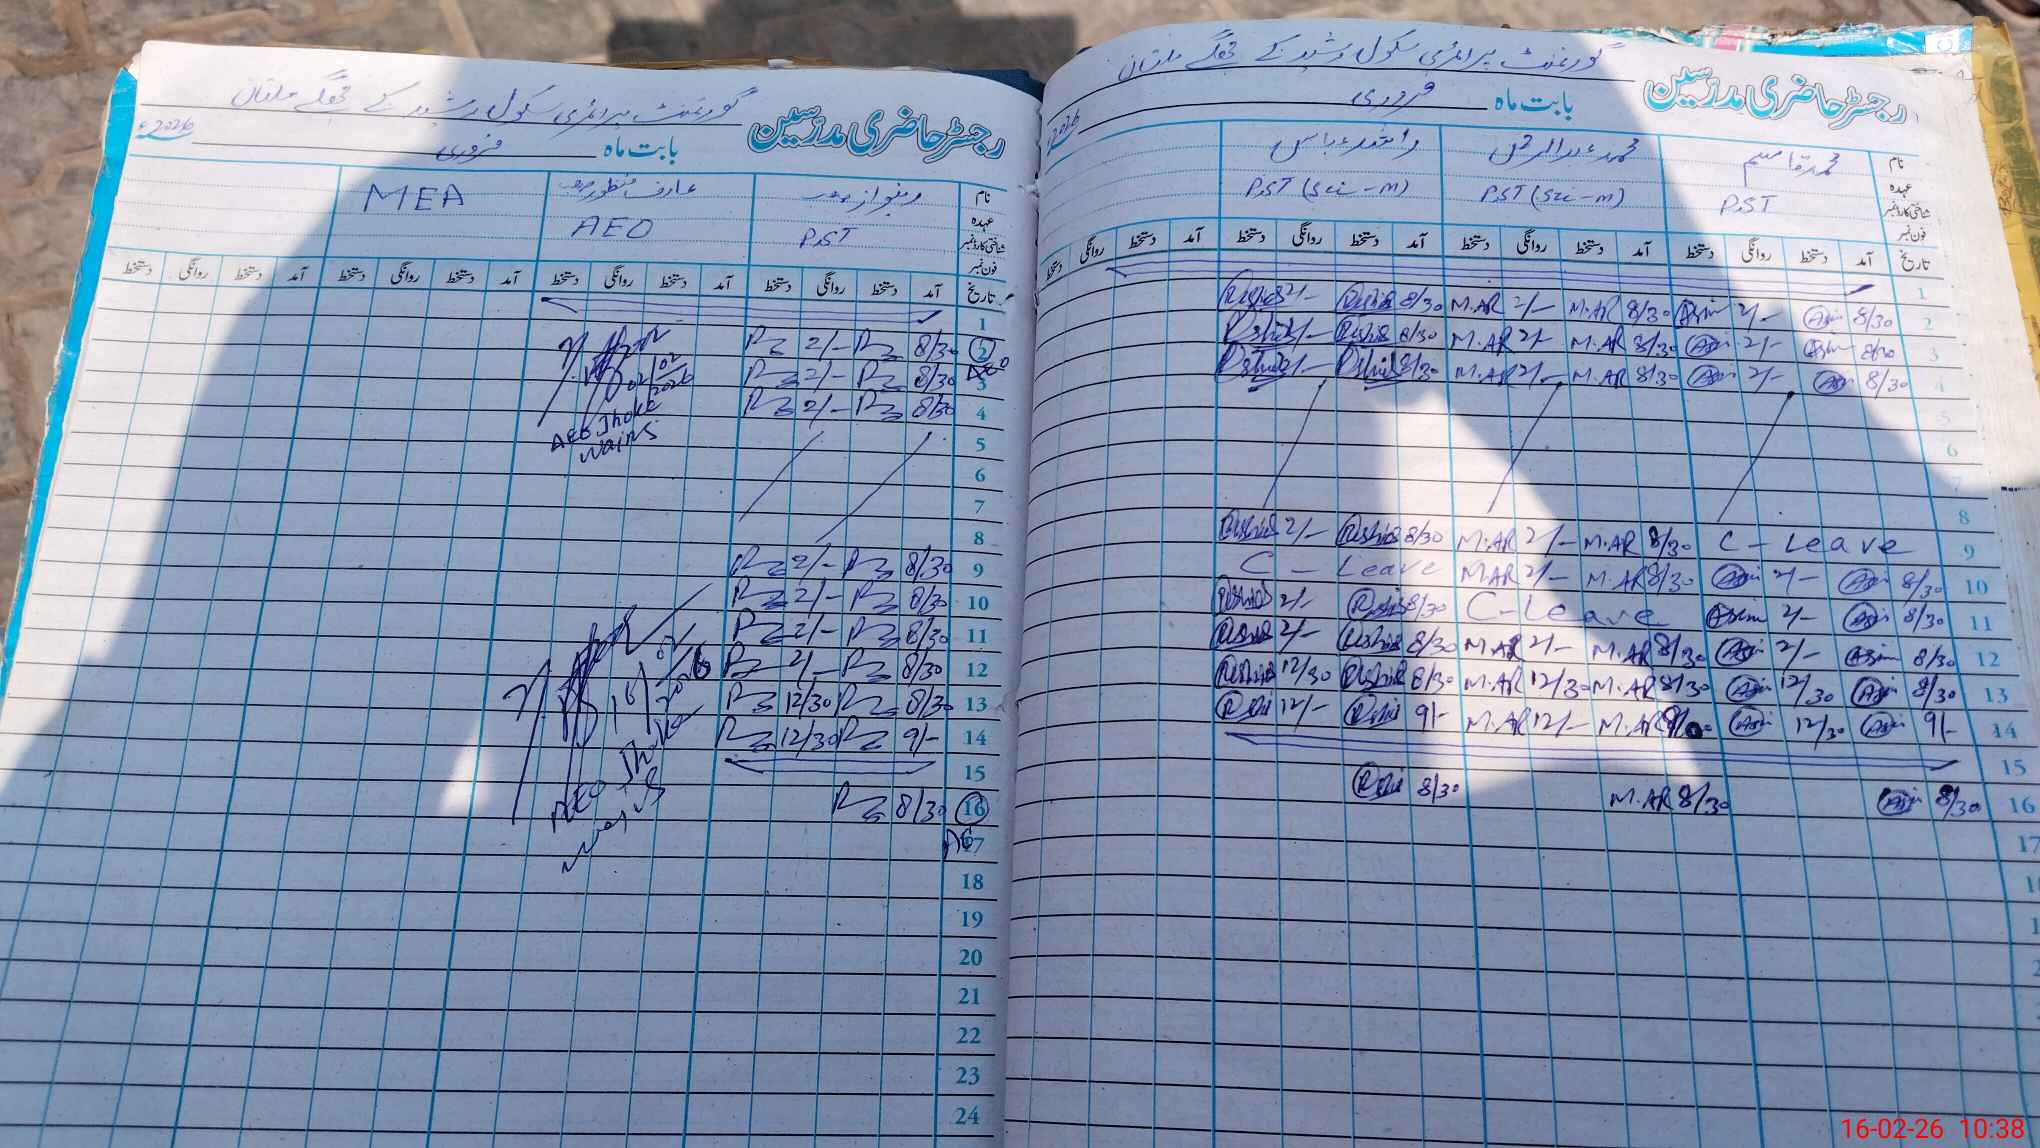 گورنمنٹ پرائمری سکول رشید کے جھگے ملتان
رجسٹر حاضری مدرسین
بابت ماہ فروری
2026ء
نام
عہدہ
شناختی کارڈ نمبر
فون نمبر
عارف منظور صاحب
MEA
AEO
PST
تاریخ آمد دستخط روانگی دستخط آمد دستخط روانگی دستخط آمد دستخط روانگی دستخط آمد دستخط روانگی دستخط
1
2 8/30 2/-
02/02/2026
3 8/30 2/-
4 8/30 2/-
AEO Jhoke
Wains
5
6
7
8
9 8/30 2/-
10 8/30 2/-
11 8/30 2/-
12 8/30 2/-
13 8/30 12/30
14 9/- 12/30
15
16 8/30
16/02/2026
AEO Jhoke
Wains
17
18
19
20
21
22
23
24
گورنمنٹ پرائمری سکول رشید کے جھگے ملتان
رجسٹر حاضری مدرسین
بابت ماہ فروری
2026
نام محمد قاسم محمد عبدالرحمن راشد عباس
عہدہ PST PST (Sci-m) PST (Sci-m)
شناختی کارڈ نمبر
فون نمبر
تاریخ آمد دستخط روانگی دستخط آمد دستخط روانگی دستخط آمد دستخط روانگی دستخط آمد دستخط روانگی دستخط
1
2 8/30 2/- 8/30 M.AR 2/- M.AR 8/30 Rashid 2/- Rashid
3 8/30 2/- 8/30 M.AR 2/- M.AR 8/30 Rashid 2/- Rashid
4 8/30 2/- 8/30 M.AR 2/- M.AR 8/30 Rashid 2/- Rashid
5
6
7
8
9 C - Leave 8/30 M.AR 2/- M.AR 8/30 Rashid 2/- Rashid
10 8/30 2/- 8/30 M.AR 2/- M.AR C - Leave
11 8/30 2/- C - Leave 8/30 Rashid 2/- Rashid
12 8/30 2/- 8/30 M.AR 2/- M.AR 8/30 Rashid 2/- Rashid
13 8/30 12/30 8/30 M.AR 12/30 M.AR 8/30 Rashid 12/30 Rashid
14 9/- 12/30 M.AR 12/- M.AR 9/- 12/-
15
16 8/30 M.AR 8/30 8/30
17
16-02-26 10:38